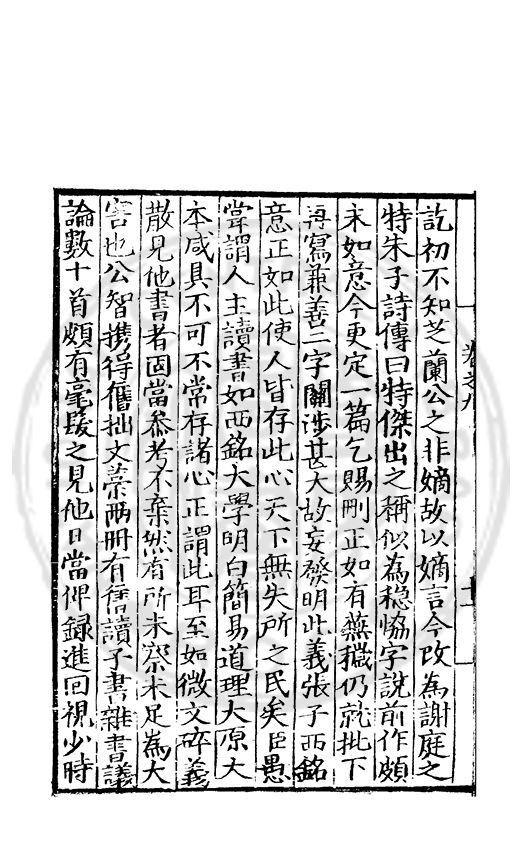 訖初不知芝蘭公之非嫡故以嫡言今改為謝庭之
特朱子詩傳曰特傑出之稱似為穏恊字說前作頗
未如意今更定一篇乞賜刪正如有蕪穢仍就批下
再寫兼善二字關涉甚大故妄發明此義張子西銘
意正如此使人皆存此心天下無失所之民矣臣愚
甞謂人主讀書如西銘大學明白簡易道理大原大
本咸具不可不常存諸心正謂此耳至如微文碎義
散見他書者固當叅考不棄然有所未察未足為大
害也公智携得舊拙文藁兩冊有舊讀子書雜書議
論數十首頗有毫髮之見他日當俾録進回視少時
卷之九
十一